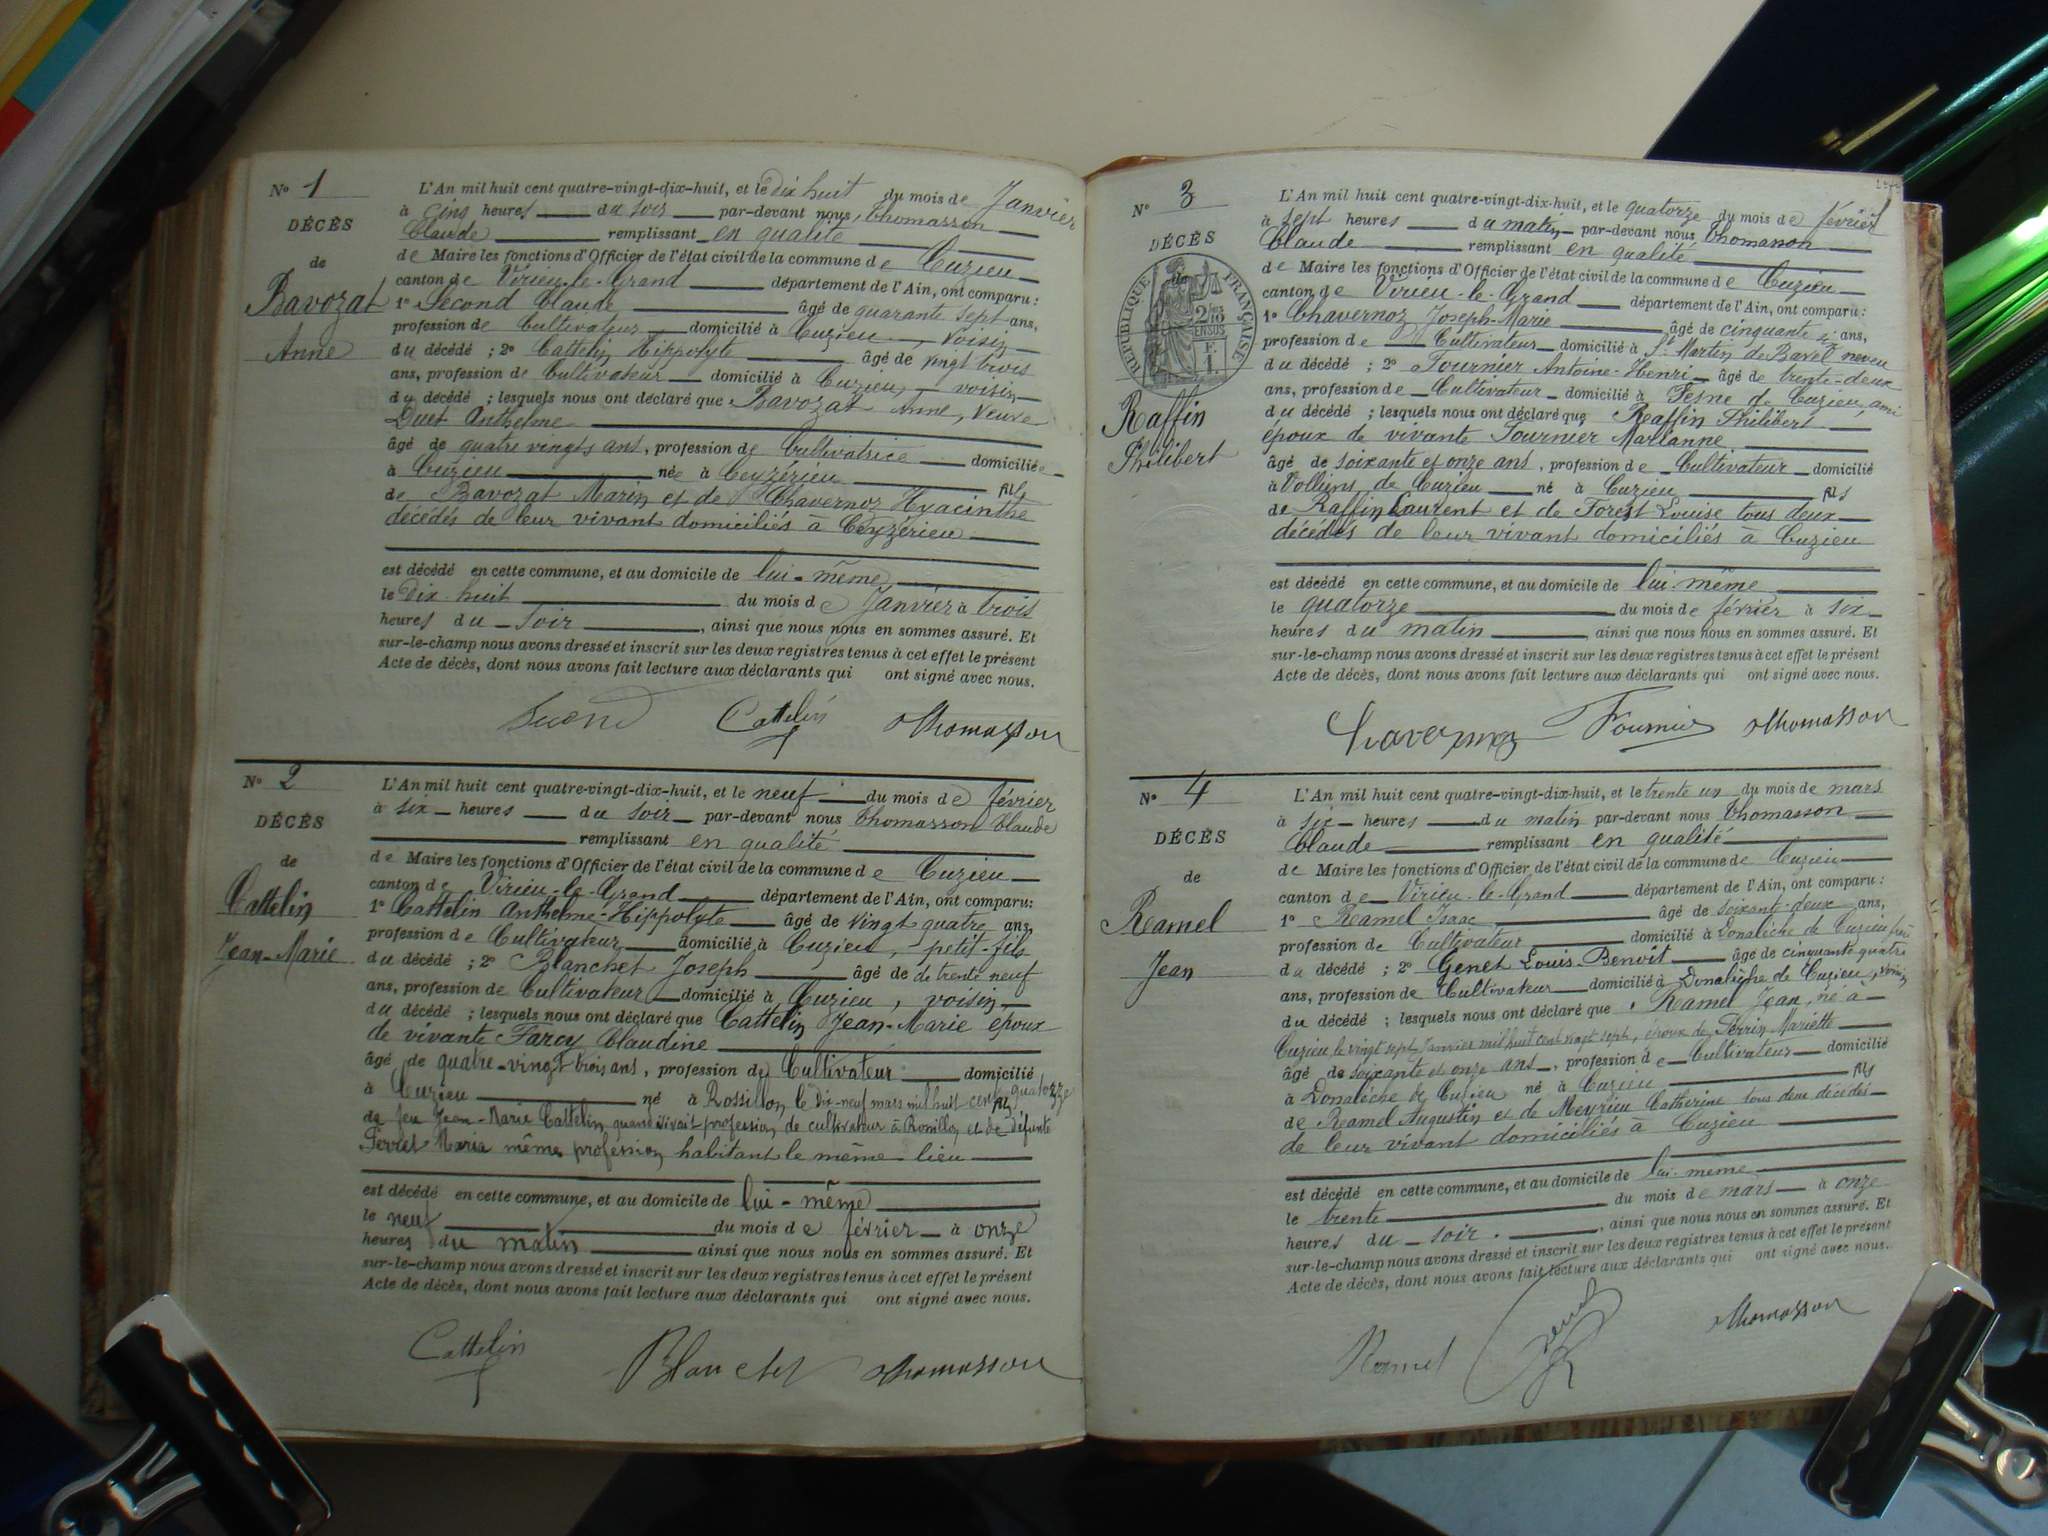 N° 1
DÉCÈS
de
Bavozat
Anne
L'An mil huit cent quatre-vingt-dix-huit, et le dix huit du mois de Janvier
à cinq heures du soir par-devant nous, Thomasson
Claude remplissant en qualité
de Maire les fonctions d'Officier de l'état civil de la commune de Cuzieu
canton de Virieu-le-Grand département de l'Ain, ont comparu :
1° Second Claude âgé de quarante sept ans,
profession de Cultivateur domicilié à Cuzieu, voisin
du décédé ; 2° Cattelin Hippolyte âgé de vingt trois
ans, profession de Cultivateur domicilié à Cuzieu, voisin
du décédé ; lesquels nous ont déclaré que Bavozat Anne, Veuve
Duet Anthelme
âgé de quatre vingts ans, profession de Cultivatrice domiciliée
à Cuzieu née à Ceyzérieu fils
de Bavozat Marin et de Chavernoz Hyacinthe
décédés de leur vivant domiciliés à Ceyzérieu
est décédé en cette commune, et au domicile de lui-même
le dix-huit du mois de Janvier à trois
heures du soir, ainsi que nous nous en sommes assuré. Et
sur-le-champ nous avons dressé et inscrit sur les deux registres tenus à cet effet le présent
Acte de décès, dont nous avons fait lecture aux déclarants qui ont signé avec nous.
Second Cattelin Thomasson
N° 2
DÉCÈS
de
Cattelin
Jean-Marie
L'An mil huit cent quatre-vingt-dix-huit, et le neuf du mois de février
à six heures du soir par-devant nous Thomasson Claude
remplissant en qualité
de Maire les fonctions d'Officier de l'état civil de la commune de Cuzieu
canton de Virieu-le-Grand département de l'Ain, ont comparu:
1° Cattelin Anthelme-Hippolyte âgé de vingt quatre ans,
profession de Cultivateur domicilié à Cuzieu, petit-fils
du décédé ; 2° Blanchet Joseph âgé de de trente neuf
ans, profession de Cultivateur domicilié à Cuzieu, voisin
du décédé ; lesquels nous ont déclaré que Cattelin Jean-Marie époux
de vivante Farcy Claudine
âgé de quatre-vingt trois ans, profession de Cultivateur domicilié
à Cuzieu né à Rossillon le dix-neuf mars mil huit cent quatorze fils
de feu Jean-Marie Cattelin quand vivait profession de cultivateur à Rossillon et de défunte
Perret Maria même profession habitant le même lieu
est décédé en cette commune, et au domicile de lui-même
le neuf du mois de février à onze
heures du matin ainsi que nous nous en sommes assuré. Et
sur-le-champ nous avons dressé et inscrit sur les deux registres tenus à cet effet le présent
Acte de décès, dont nous avons fait lecture aux déclarants qui ont signé avec nous.
Cattelin Blanchet Thomasson
N° 3
DÉCÈS
de
RÉPUBLIQUE FRANÇAISE
Raffin
Philibert
L'An mil huit cent quatre-vingt-dix-huit, et le quatorze du mois de février
à sept heures du matin par-devant nous Thomasson
Claude remplissant en qualité
de Maire les fonctions d'Officier de l'état civil de la commune de Cuzieu
canton de Virieu-le-Grand département de l'Ain, ont comparu :
1° Chavernoz Joseph-Marie âgé de cinquante ans,
profession de Cultivateur domicilié à St Martin de Bavel neveu
du décédé ; 2° Fournier Antoine-Henri âgé de trente-deux
ans, profession de Cultivateur domicilié à Fesne de Cuzieu, ami
du décédé ; lesquels nous ont déclaré que Raffin Philibert
époux de vivante Fournier Marianne
âgé de soixante et onze ans, profession de Cultivateur domicilié
à Volliens de Cuzieu né à Cuzieu fils
de Raffin Laurent et de Forest Louise tous deux
décédés de leur vivant domiciliés à Cuzieu
est décédé en cette commune, et au domicile de lui-même
le quatorze du mois de février à six
heures du matin ainsi que nous nous en sommes assuré. Et
sur-le-champ nous avons dressé et inscrit sur les deux registres tenus à cet effet le présent
Acte de décès, dont nous avons fait lecture aux déclarants qui ont signé avec nous.
Chavernoz Fournier Thomasson
N° 4
DÉCÈS
de
Ramel
Jean
L'An mil huit cent quatre-vingt-dix-huit, et le trente un du mois de mars
à six heures du matin par-devant nous Thomasson
Claude remplissant en qualité
de Maire les fonctions d'Officier de l'état civil de la commune de Cuzieu
canton de Virieu-le-Grand département de l'Ain, ont comparu :
1° Ramel Isaac âgé de soixante-deux ans,
profession de Cultivateur domicilié à Donalèche de Cuzieu frère
du décédé ; 2° Genet Louis-Benoit âgé de cinquante quatre
ans, profession de Cultivateur domicilié à Donalèche de Cuzieu, voisin
du décédé ; lesquels nous ont déclaré que Ramel Jean, né à
Cuzieu le vingt sept Janvier mil huit cent vingt sept, époux de Perrin Mariette
âgé de soixante et onze ans, profession de Cultivateur domicilié
à Donalèche de Cuzieu né à Cuzieu fils
de Ramel Augustin et de Meyrieu Catherine tous deux décédés
de leur vivant domiciliés à Cuzieu
est décédé en cette commune, et au domicile de lui-même
le trente du mois de mars à onze
heures du soir, ainsi que nous nous en sommes assuré. Et
sur-le-champ nous avons dressé et inscrit sur les deux registres tenus à cet effet le présent
Acte de décès, dont nous avons fait lecture aux déclarants qui ont signé avec nous.
Ramel Genet Thomasson